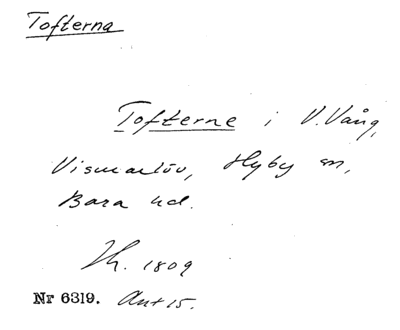 Tofterna
Tofterne i V. Vång,
Vismarlöv, Hyby sn,
Bara hd.
Th. 1809
Nr 6319. Ant 15.